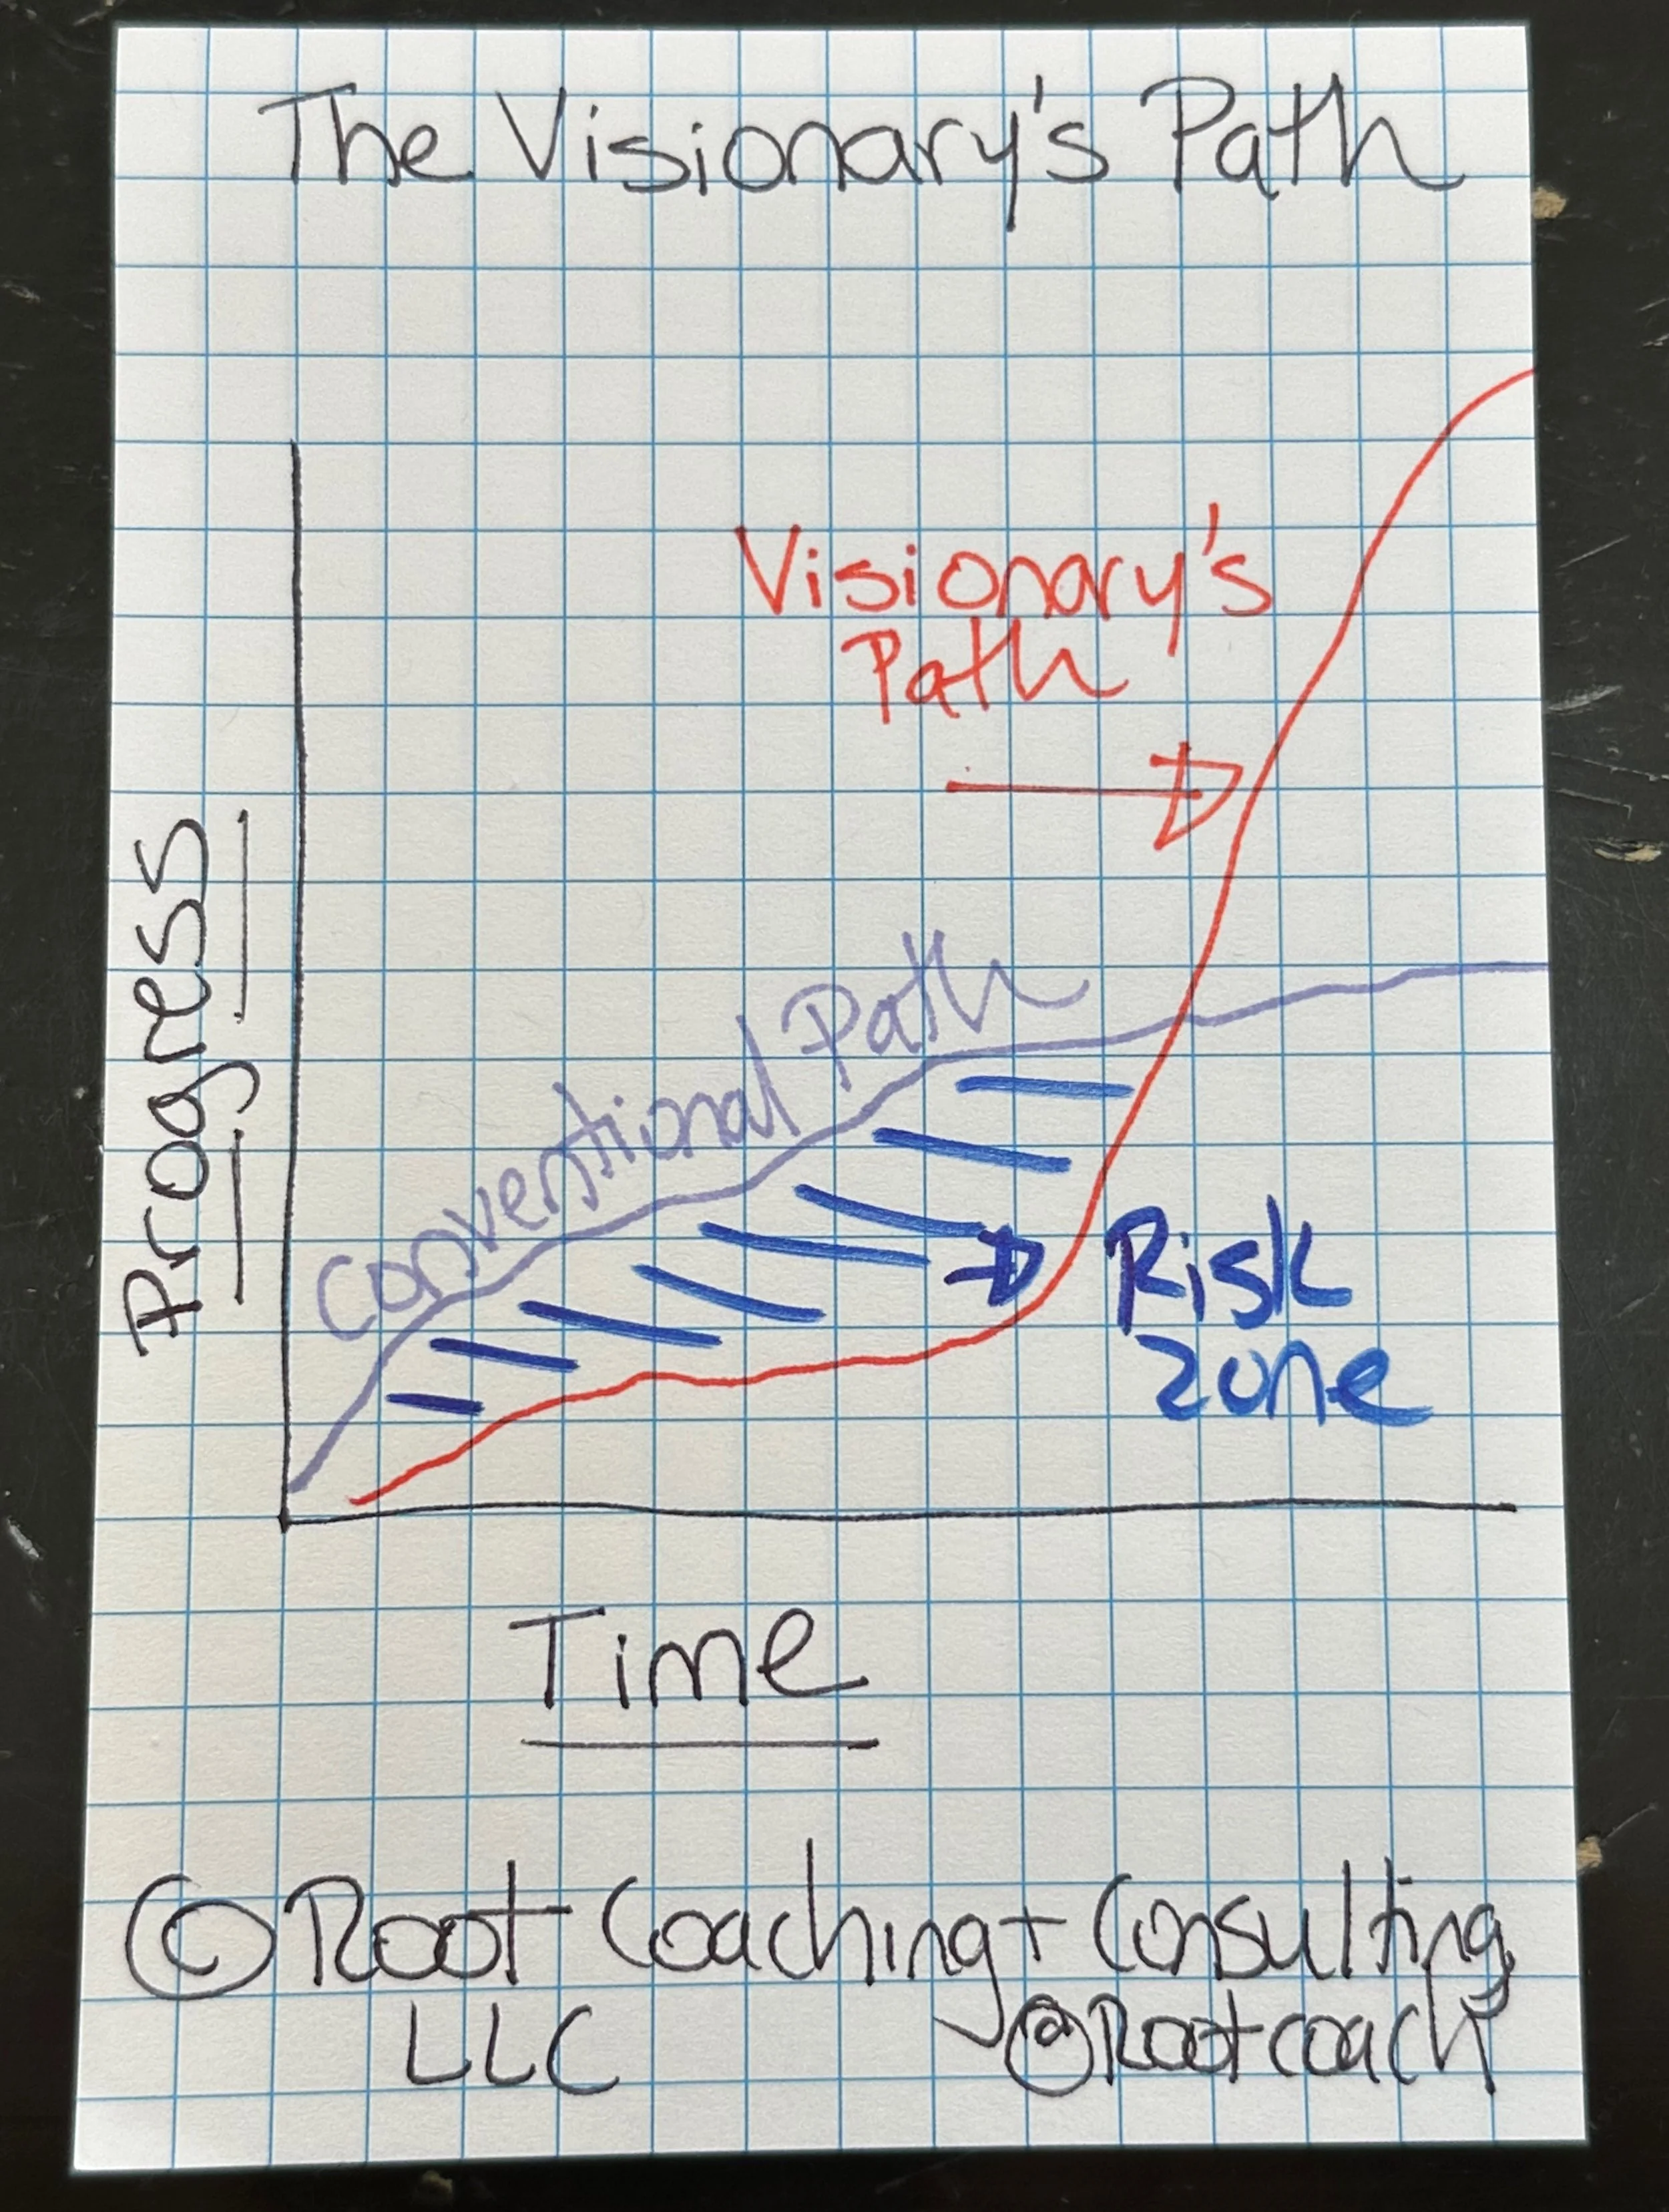 The Visionary's Path
Visionary's
Path
Conventional Path
Progress
Risk
zone
Time
© Root Coaching + Consulting
LLC
@Rootcoach